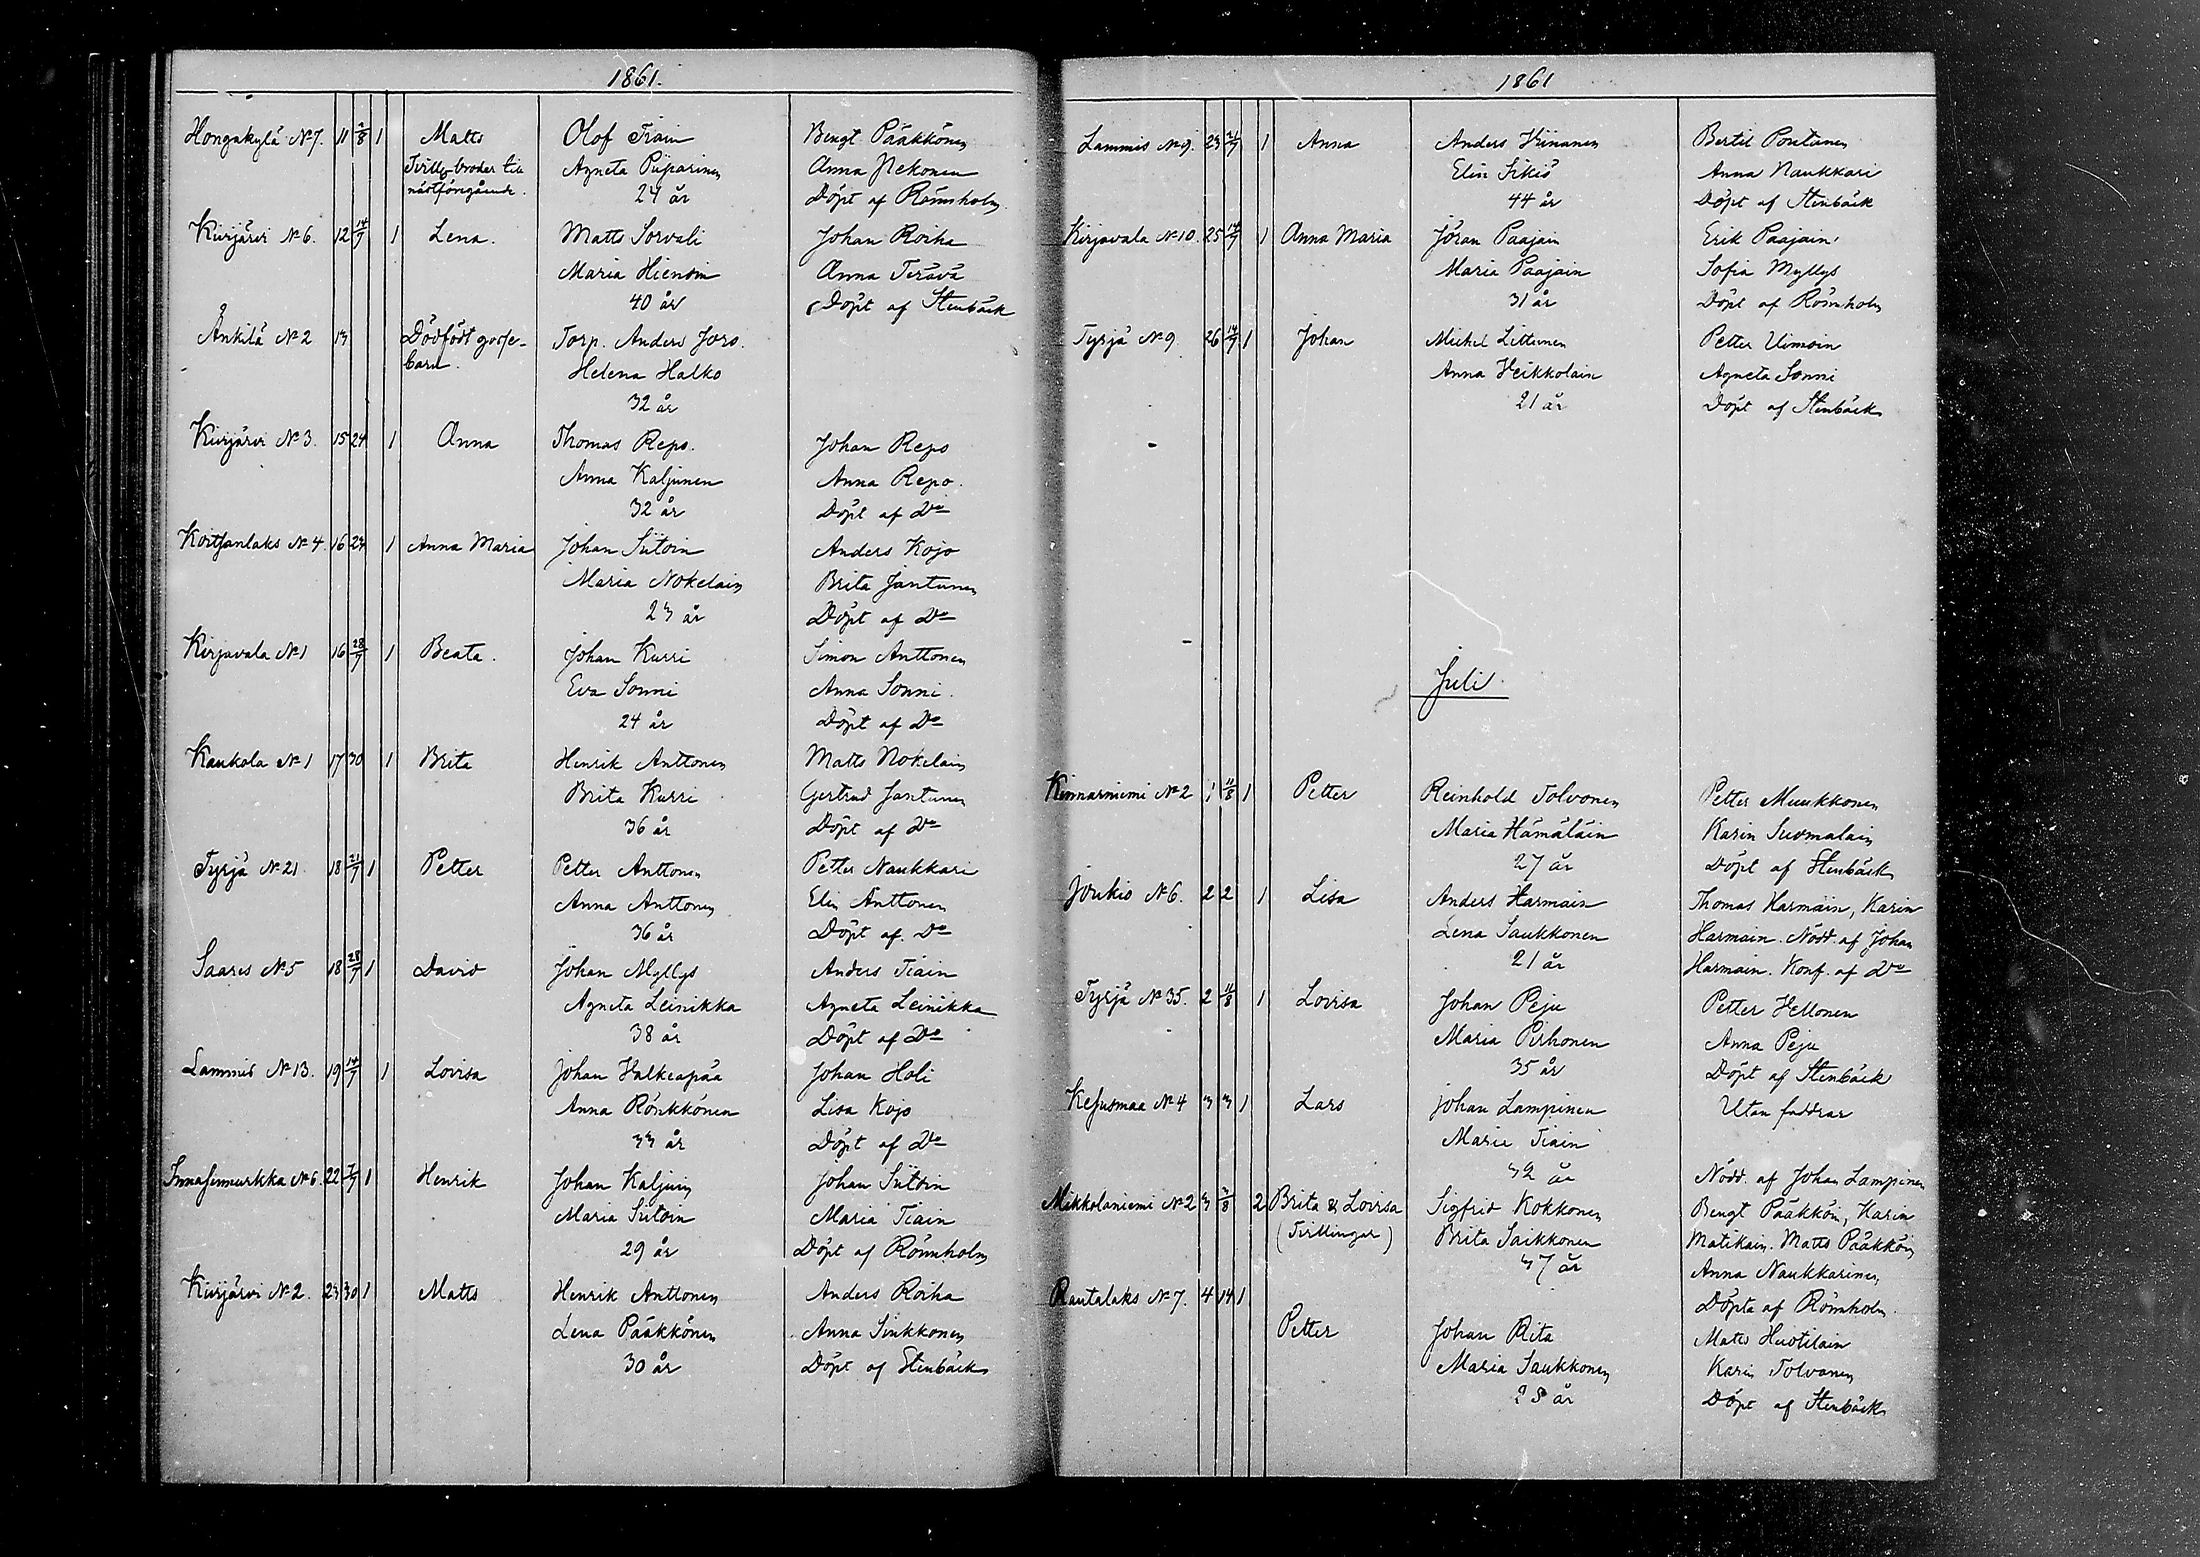 1861.
Hongakylä No 7. 11 2/8 1 Matts Olof Tiain Bengt Pääkkönen
Tvilling broder till Agneta Piiparinen Anna Nekonen
nästföregående. 24 år Döpt af Rönnholm
Kirjärvi No 6. 12 14/7 1 Lena. Matts Sorvali Johan Roiha
Maria Hienoin Anna Terävä
40 år Döpt af Stenbäck
Änkilä No 2 13 Dödfödt gosse- Torp. Anders Joro.
barn. Helena Halko
32 år
Kirjärvi No 3. 15 24 1 Anna Thomas Repo. Johan Repo
Anna Kaljunen Anna Repo.
32 år Döpt af Do
Koitsanlaks No 4. 16 24 1 Anna Maria Johan Siitoin Anders Kojo
Maria Nokelain Brita Jantunen
23 år Döpt af Do
Kirjavala No 1 16 28/7 1 Beata. Johan Kurri Simon Anttonen
Eva Sonni Anna Sonni.
24 år Döpt af Do
Kankola No 1 17 30 1 Brita Henrik Anttonen Matts Nokelain
Brita Kurri Gertrud Jantunen
36 år Döpt af Do
Tyrjä No 21 18 21/7 1 Petter Petter Anttonen Petter Naukkari
Anna Anttonen Elin Anttonen
36 år Döpt af. Do
Saares No 5 18 28/7 1 David Johan Myllys Anders Tiain
Agneta Leinikka Agneta Leinikka
38 år Döpt af Do
Lammis No 13. 19 14/7 1 Lovisa Johan Valkeapää Johan Holi
Anna Rönkkönen Lisa Kojo
33 år Döpt af Do
No 6. 22 7/7 1 Henrik Johan Kaljunen Johan Siitoin
Maria Siitoin Maria Tiain
29 år Döpt af Rönnholm
Kirjärvi No 2. 23 30 1 Matts Henrik Anttonen Anders Roiha
Lena Pääkkönen Anna Sinkkonen
30 år Döpt af Stenbäck
1861
Lammis No 9. 23 21/7 1 Anna Anders Kiinanen Bertil Pontanen
Elin Sikiö Anna Naukkari
44 år Döpt af Stenbäck
Kirjavala No 10. 25 14/7 1 Anna Maria Jöran Paajain Erik Paajain
Maria Paajain Sofia Myllys
31 år Döpt af Rönnholm
Tyrjä No 9. 26 14/7 1 Johan Michel Littunen Petter Uimoin
Anna Veikkolain Agneta Sonni
21 år Döpt af Stenbäck
Juli.
Kinnarniemi No 2 1 11/8 1 Petter Reinhold Tolvonen Petter Muukkonen
Maria Hämäläin Karin Suomalain
27 år Döpt af Stenbäck
Joukio No 6. 2 2 1 Lisa Anders Harmain Thomas Harmain, Karin
Lena Saukkonen Harmain. Nödd. af Johan
21 år Harmain. Konf. af Do
Tyrjä No 35. 2 11/8 1 Lovisa Johan Peju Petter Hellonen
Maria Pirhonen Anna Peju
35 år Döpt af Stenbäck
Kesusmaa No 4 3 3 1 Lars Johan Lampinen Utan faddrar
Maria Tiain
32 år Nödd. af Johan Lampinen
Mikkolaniemi No 2 3 3/8 2 Brita & Lovisa Sigfrid Kokkonen Bengt Pääkköin, Karin
(Tvillingar) Brita Saikkonen Matikain. Matts Pääkköin
37 år Anna Naukkarinen
Döpta af Rönnholm.
Rautalaks No 7. 4 14 1 Petter Johan Rita Matts Huotilain
Maria Saukkonen Karin Tolvanen
28 år Döpt af Stenbäck